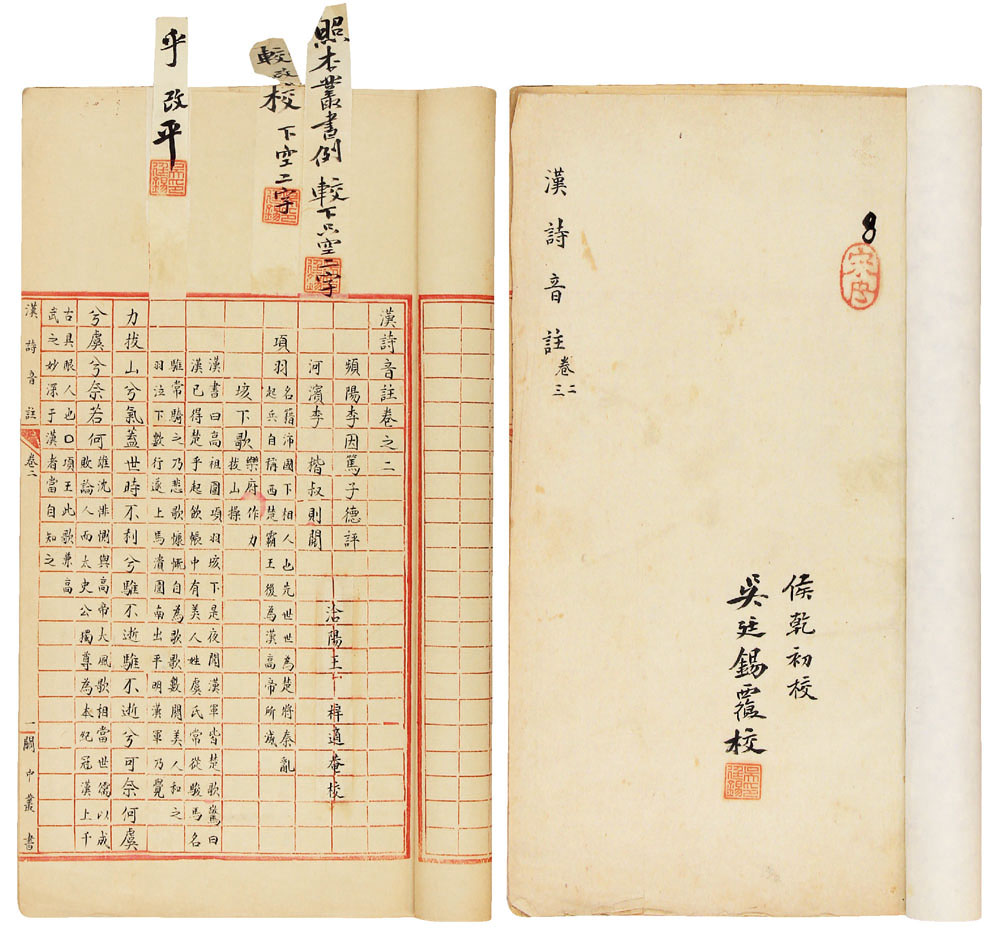 8
侯乾初校
吳廷錫覆校
漢詩音註卷二
三
照本叢書例較下只空二字
較改校下空二字
乎改平
漢詩音註卷之二
頻陽李因篤子德評
河濱李 楷叔則閱
洽陽王 梓適菴校
項羽名籍沛國下相人也先世世為楚將秦亂
起兵自稱西楚霸王後為漢高帝所滅
垓下歌樂府作力
拔山操
漢書曰高祖圍項羽垓下是夜聞漢軍皆楚歌驚曰
漢已得楚乎起飲帳中有美人姓虞氏常從駿馬名
騅常騎之乃悲歌慷慨自為歌歌數闋美人和之
羽泣下數行遂上馬潰圍南出平明漢軍乃覺
力拔山兮氣蓋世時不利兮騅不逝騅不逝兮可奈何虞
兮虞兮奈若何雄沈悱惻與高帝大風歌相當世儒以成
敗論人而太史公獨尊為本紀冠漢上千
古具眼人也○項王此歌兼高
武之妙深于漢者當自知之
漢詩音註 卷二 一 關中叢書